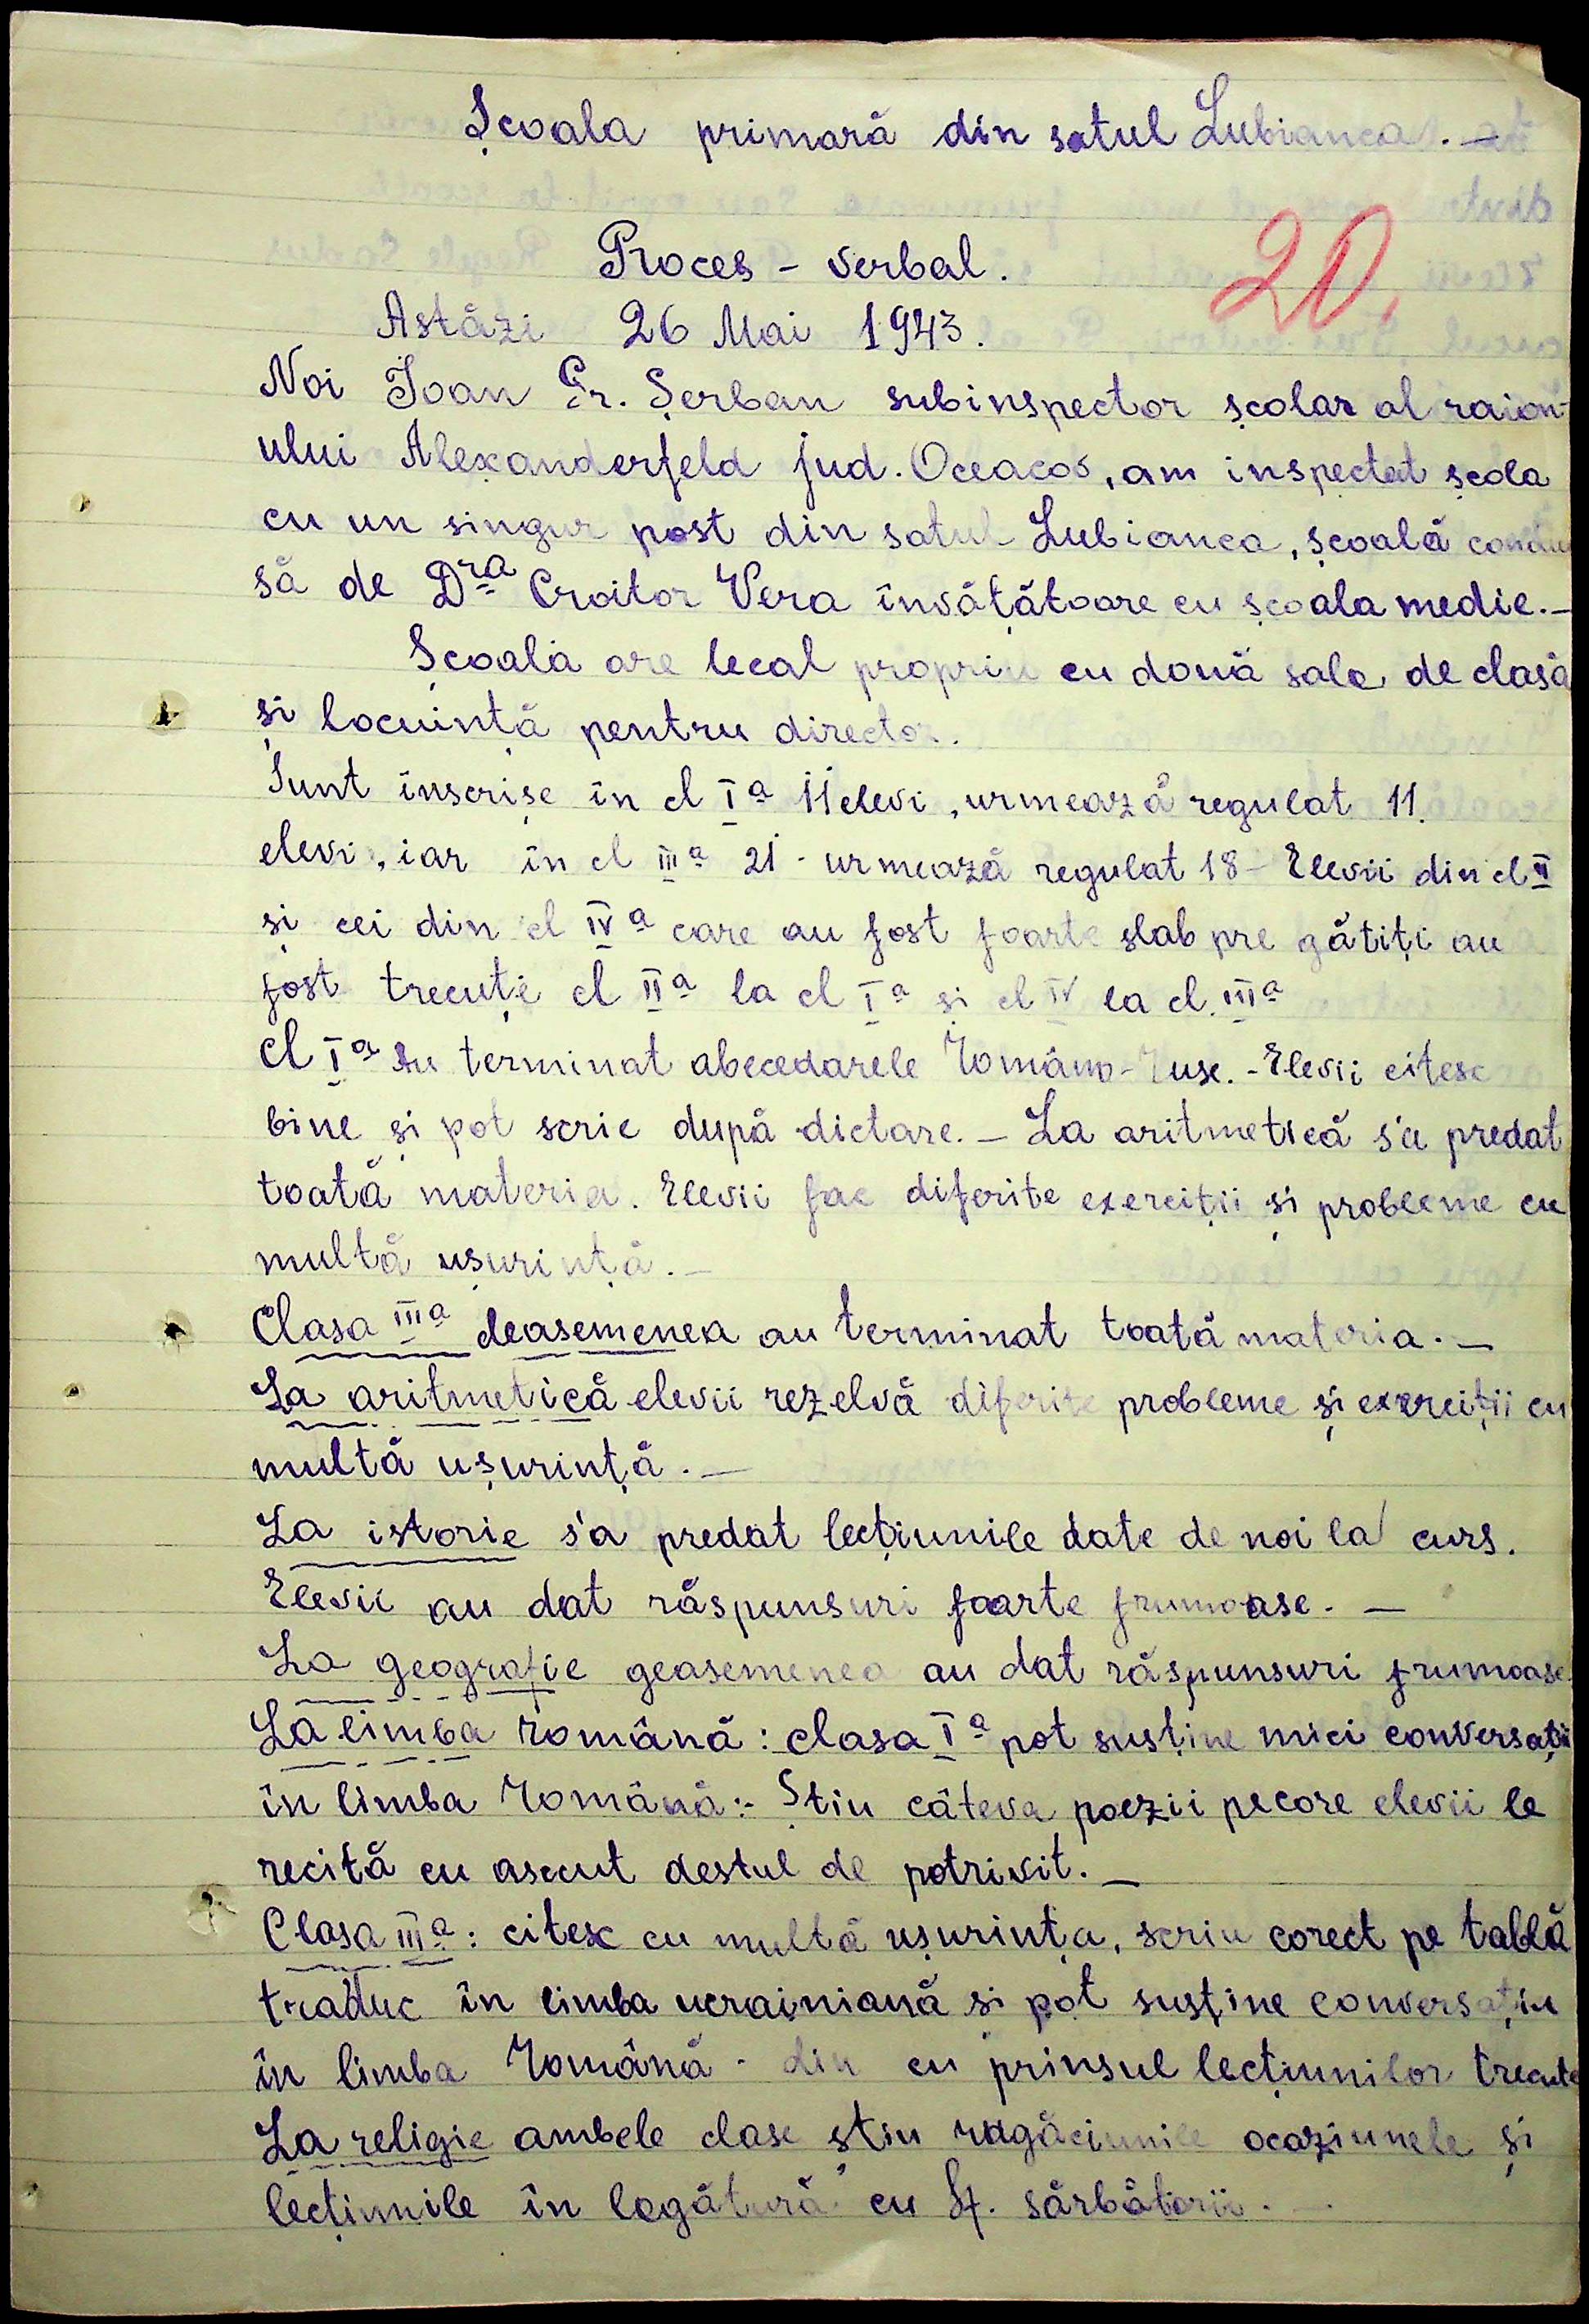 Școala primară din satul Lubianca. —
20.
Proces - verbal.
Astăzi 26 Mai 1943.
Noi Ioan Gr. Șerban subinspector școlar al raion-
ului Alexanderfeld jud. Oceacov, am inspectat școla
cu un singur post din satul Lubianca, școală condu
să de Dra Croitor Vera învățătoare cu școala medie. —
Școala are local propriu cu două sale de clasă
și locuință pentru director.
Sunt înscrise în cl Ia 11 elevi, urmează regulat 11.
elevi, iar în cl IIIa 21 - urmează regulat 18 - Elevii din cl II
și cei din cl IVa care au fost foarte slab pre gătiți au
fost trecuți cl IIa la cl Ia și cl IV la cl. IIIa
Cl Ia au terminat abecedarele Româno-ruse. - Elevii citesc
bine și pot scrie după dictare. — La aritmetică s'a predat
toată materia. Elevii fac diferite exerciții și probleme cu
multă ușurință. —
Clasa IIIa deasemenea au terminat toată materia. —
La aritmetică elevii rezelvă diferite probleme și exerciții cu
multă ușurință. —
La istorie s'a predat lecțiunile date de noi la curs.
Elevii au dat răspunsuri foarte frumoase. —
La geografie geasemenea au dat răspunsuri frumoase.
La limba română: clasa Ia pot susține mici conversații
în limba română:- Știu câteva poezii pecore elevii le
recită cu ascut destul de potrivit. —
Clasa IIIa: citesc cu multă ușurința, scriu corect pe tablă
traduc în limba ucrainiană si pot susține conversațiu
în limba română - din cu prinsul lecțiunilor trecute
La religie ambele clase știu rugăciunile ocaziunele și
lecțiunile în legătură cu Sf. sărbătorii. —